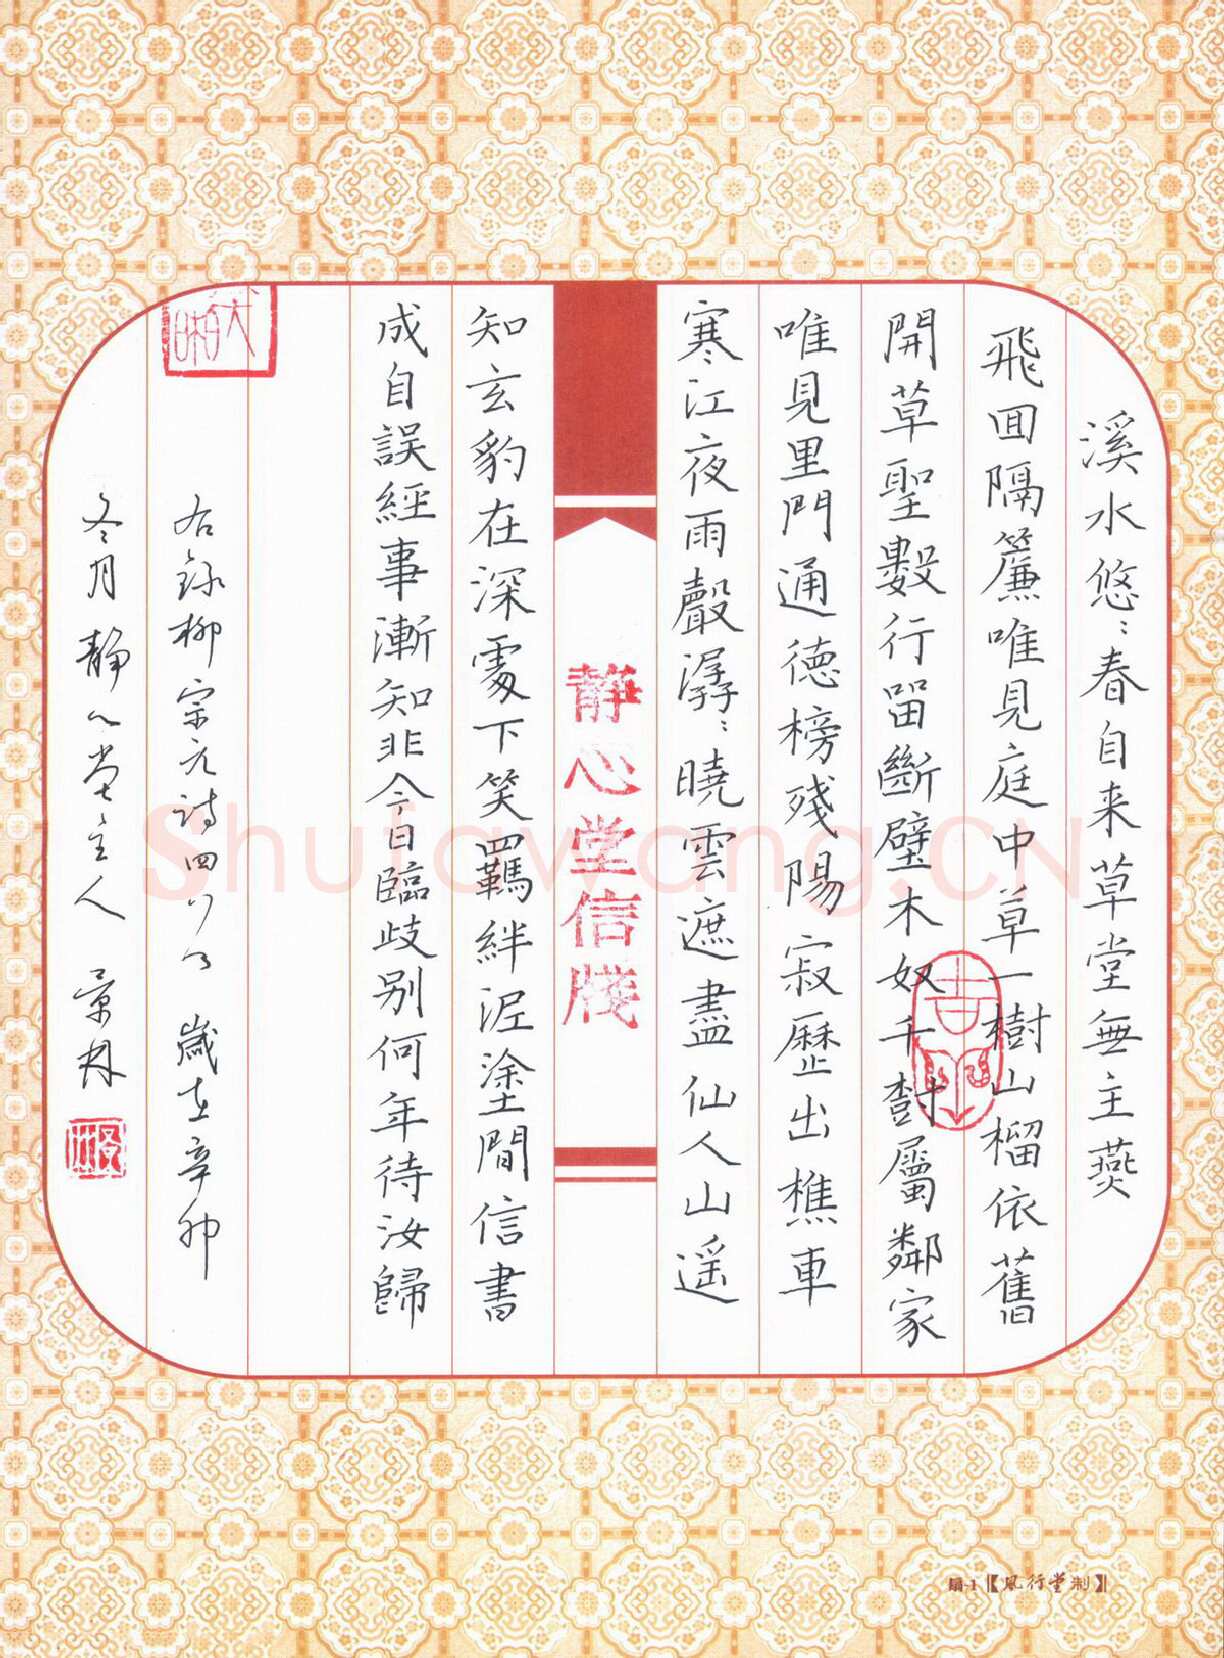 溪水悠〻春自来草堂無主燕
飛回隔簾唯見庭中草一樹山榴依舊
開草聖數行留斷壁木奴千樹屬鄰家
唯見里門通德榜殘陽寂歷出樵車
寒江夜雨聲潺〻曉雲遮盡仙人山遥
知玄豹在深處下笑羈絆泥塗間信書
成自誤經事漸知非今日臨歧別何年待汝歸
右錄柳宗元詩四首 歲在辛卯
冬月靜心堂主人 景林
靜心堂信牋
吉
Shufawang.CN
扇-1【風行堂制】